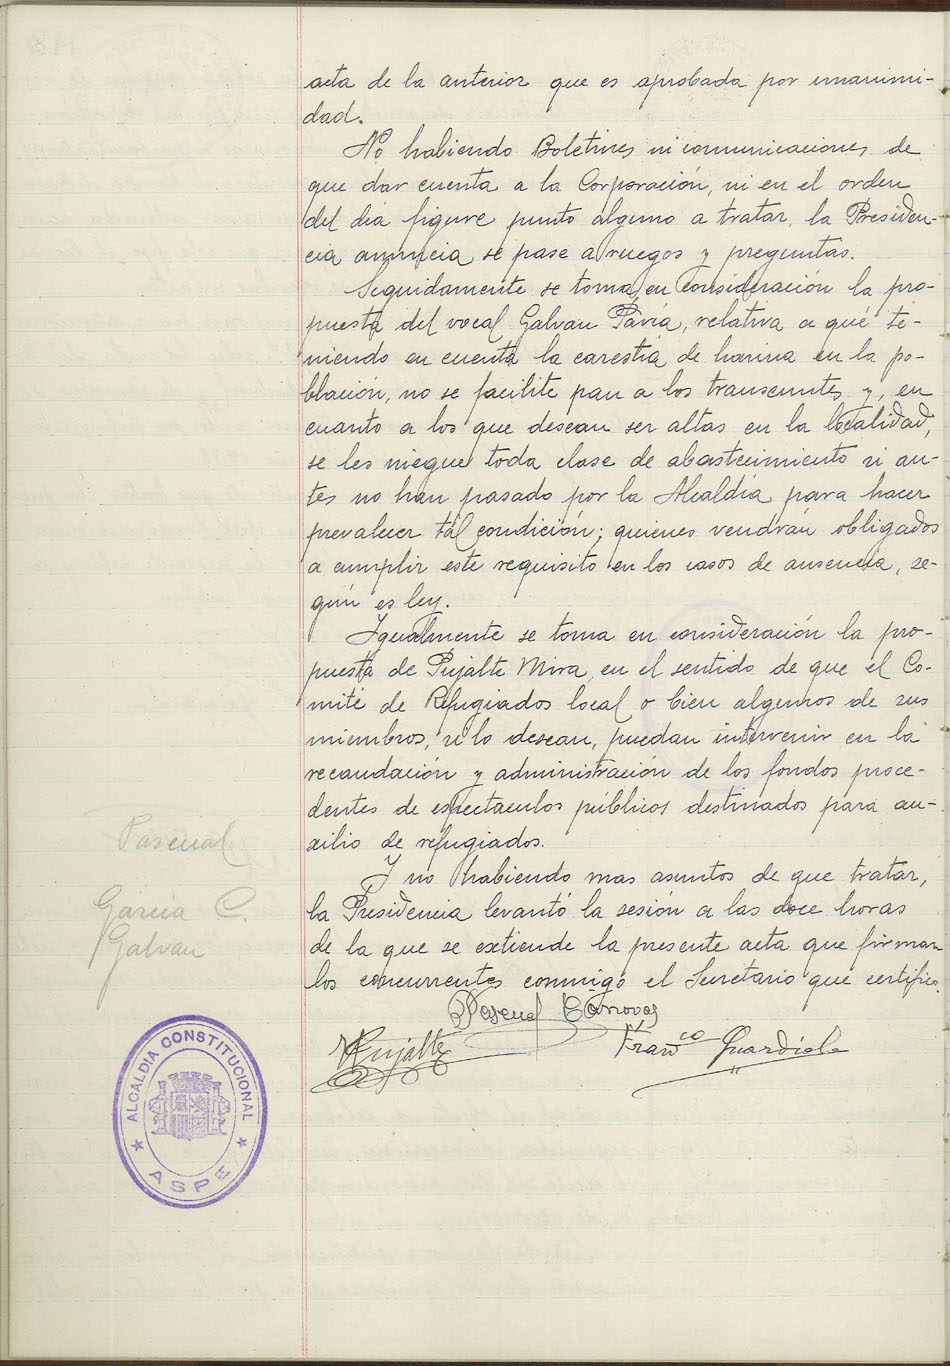 acta de la anterior que es aprobada por unanimi-
dad.
No habiendo Boletines ni comunicaciones de
que dar cuenta a la Corporación, ni en el orden
del dia figure punto alguno a tratar, la Presiden-
cia anuncia se pase a ruegos y preguntas.
Seguidamente se toma en consideración la pro-
puesta del vocal Galvan Pavia, relativa a qué te-
niendo en cuenta la carestia de harina en la po-
blación, no se facilite pan a los transeuntes y, en
cuanto a los que desean ser altas en la localidad,
se les niegue toda clase de abastecimiento si an-
tes no han pasado por la Alcaldia para hacer
prevalecer tal condición; quienes vendrán obligados
a cumplir este requisito en los casos de ausencia, se-
gún es ley.
Igualmente se toma en consideración la pro-
puesta de Pujalte Mira, en el sentido de que el Co-
mité de Refugiados local o bien algunos de sus
miembros, si lo desean, puedan intervenir en la
recaudación y administración de los fondos proce-
dentes de espectaculos públicos destinados para au-
xilio de refugiados.
Y no habiendo mas asuntos de que tratar,
la Presidencia levantó la sesión a las doce horas
de la que se extiende la presente acta que firman
los concurrentes conmigo el Secretario que certifico.
Pascual Cánovas
Pujalte
Franco Guardiola
Pascual
Garcia C.
Galvan
ALCALDIA CONSTITUCIONAL
ASPE